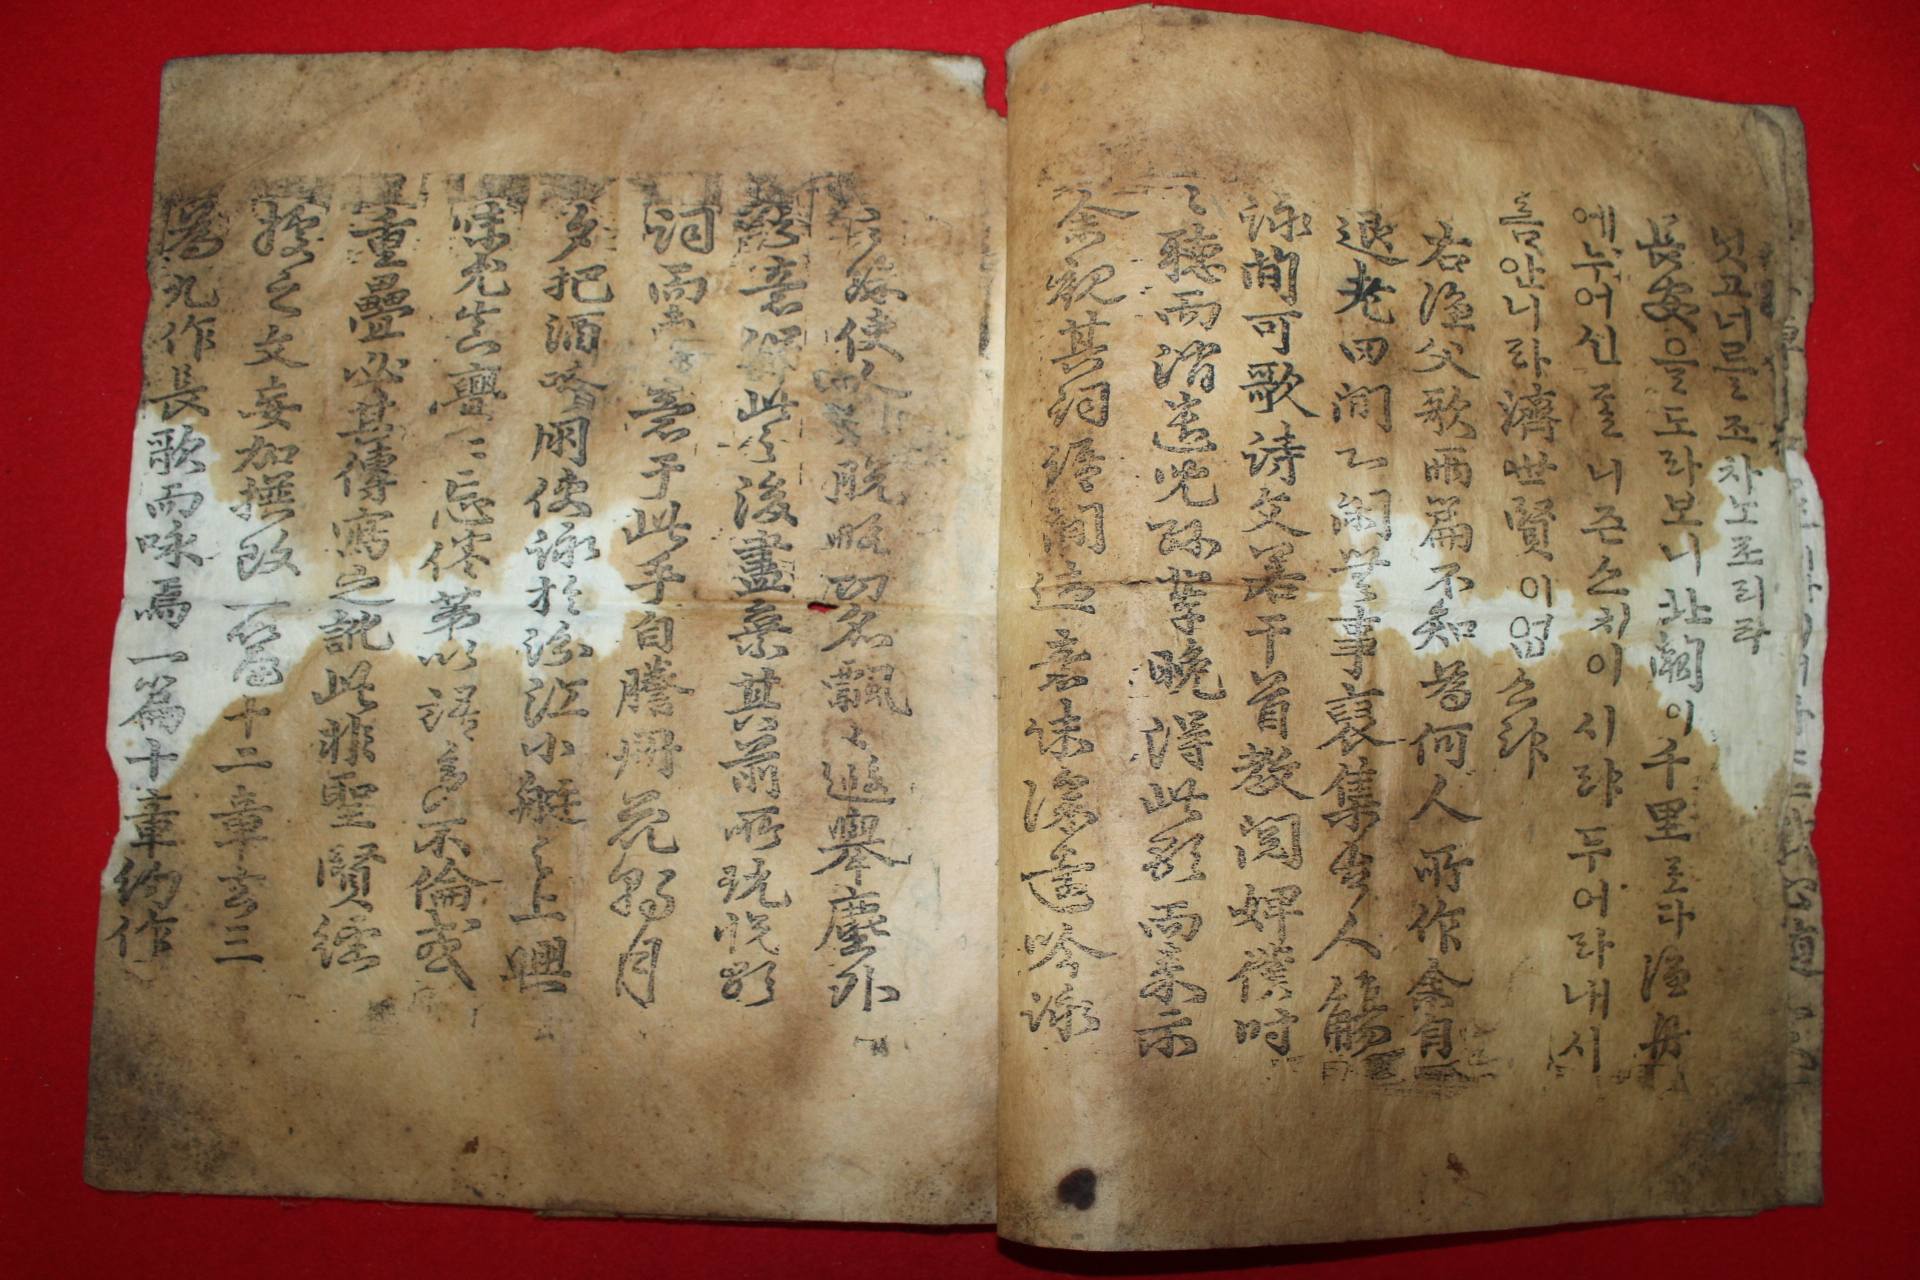 닛고녀름조차노프리라
長安을도라보니北闕이千里로다漁舟
에누어신ᄃᆞᆯ니즌스치이시랴두어라내시
름안니라濟世賢이업스랴
右漁父歌兩篇不知爲何人所作余自
退老田間心閒無事裒集古人觴
詠間可歌詩文若干首敎閱婢僕時
〻聽而消遣兒孫輩晩得此歌而來示
余觀其詞語閒適意味深遠吟詠
之餘使人有脫略功名飄〻遐擧塵外
之意得此之後盡棄其前所玩悅歌
詞而專意于此手自謄冊花朝月
夕把酒呼朋使詠於汾江小艇之上興
味尤眞亹〻忘倦第以語多不倫或
重疊必其傳寫之訛此非聖賢經
據之文妄加撰改一篇十二章去三
爲九作長歌而咏焉一篇十章約作